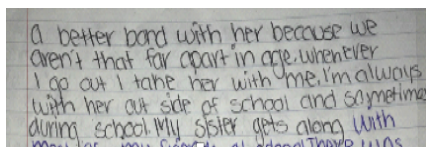 a better bond with her because we
aren't that far apart in age. whenever
I go out I take her with me. I'm always
with her out side of school and sometimes
during school. My sister gets along with